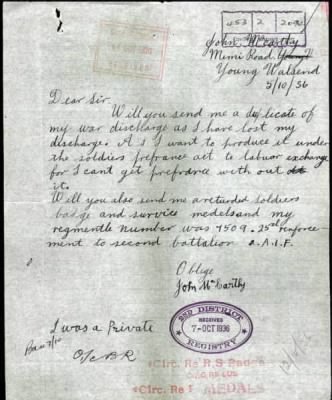 453 2 20
John McCarthy
Memi Road. Young H
Young Walsend
5/10/36
Dear Sir.
Will you send me a duplicate of
my war discharge as I have lost my
discharge. As I want to produce it under
the soldiers prefrance act to labuar exchange
for I cant get prefrance with out
it.
Will you also send me a returded soldiers
badge and survice medels and my
regmentle number was 7509. 25th renforce
ment to second battalion A.A.I.F.
Oblige
John McCarthy
I was a Private
O/c B.R
2ND DISTRICT
RECEIVED
7-OCT 1936
REGISTRY
Circ. Re R.S Badge
Circ. Re MEDALS